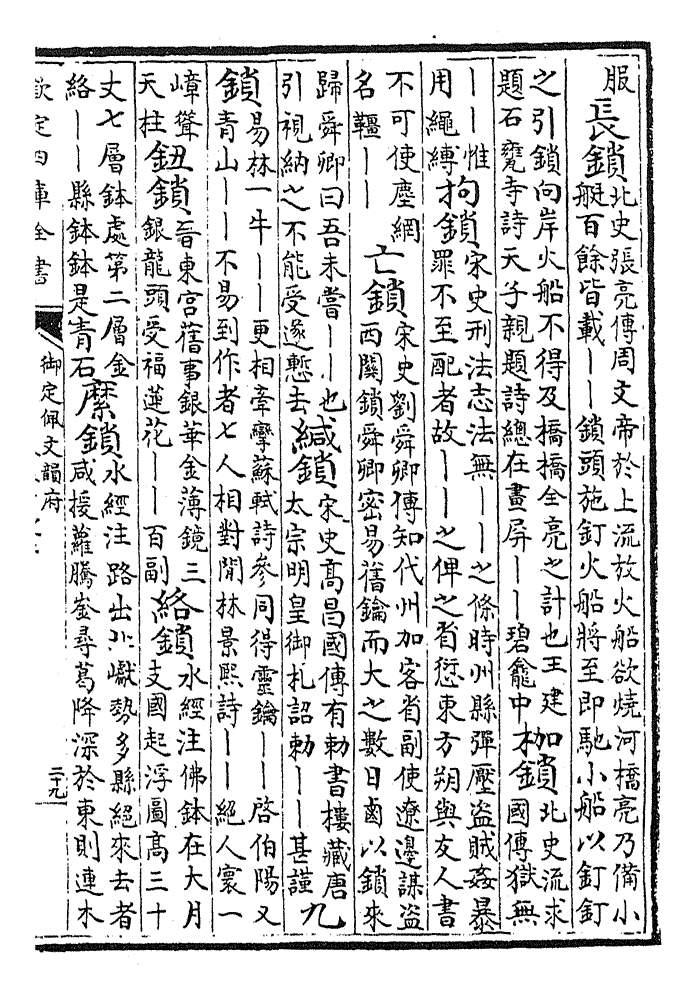 服長鎖北史張亮傳周文帝於上流放火船欲燒河橋亮乃備小
艇百餘皆載——鎖頭施釘火船將至即馳小船以釘釘
之引鎖向岸火船不得及橋橋全亮之計也王建
題石甕寺詩天子親題詩總在畫屏——碧龕中枷鎖北史流求
國傳獄無
——惟
用繩縛拘鎖宋史刑法志法無——之條時州縣彈壓盜賊姦暴
罪不至配者故——之俾之省愆東方朔與友人書
不可使塵網
名韁——亡鎖宋史劉舜卿傳知代州加客省副使遼邊謀盜
西關鎖舜卿密易舊鑰而大之數日鹵以鎖來
歸舜卿曰吾未嘗——也
引視納之不能受遂慙去緘鎖宋史高昌國傳有勅書樓藏唐
太宗明皇御札詔勅——甚謹九
鎖易林一牛——更相牽攣蘇軾詩參同得靈鑰——啓伯陽又
青山——不易到作者七人相對閒林景熙詩——絕人寰一
嶂聳
天柱鈕鎖晉東宮舊事銀華金薄鏡三
銀龍頭受福蓮花——百副絡鎖水經注佛鉢在大月
支國起浮圖高三十
丈七層鉢處第二層金
絡——縣鉢鉢是青石縻鎖水經注路出北巘勢多縣絕來去者
咸援蘿騰崟尋葛降深於東則連木
欽定四庫全書
御定佩文韻府
二十九